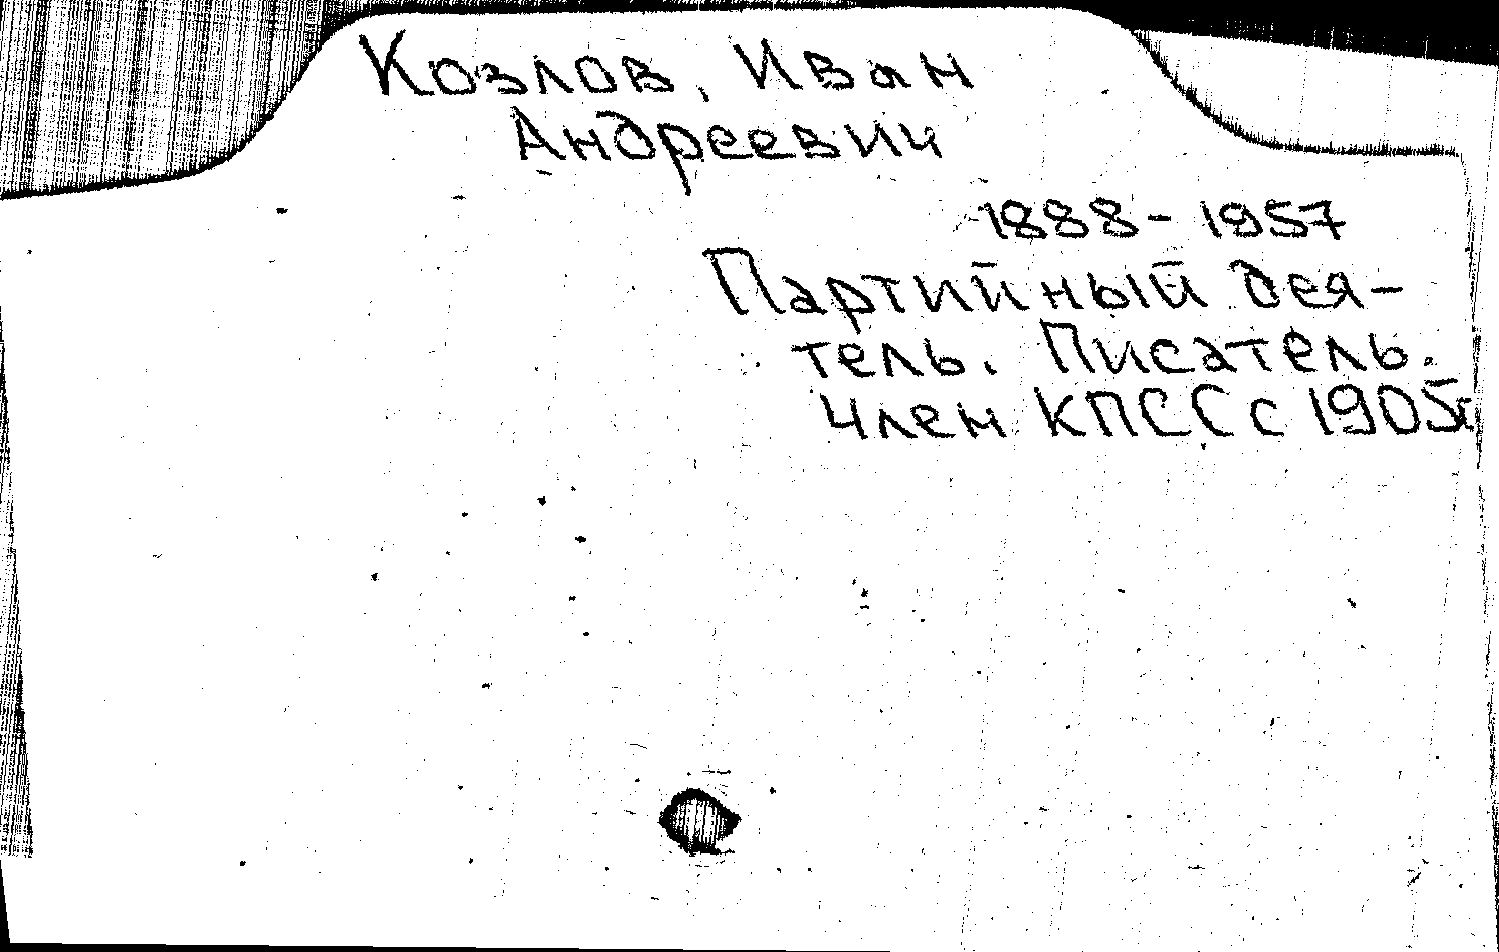 Козлов, Иван
Андреевич
1888-1957
Партийный дея-
тель. Писатель.
Член КПСС с 1905г